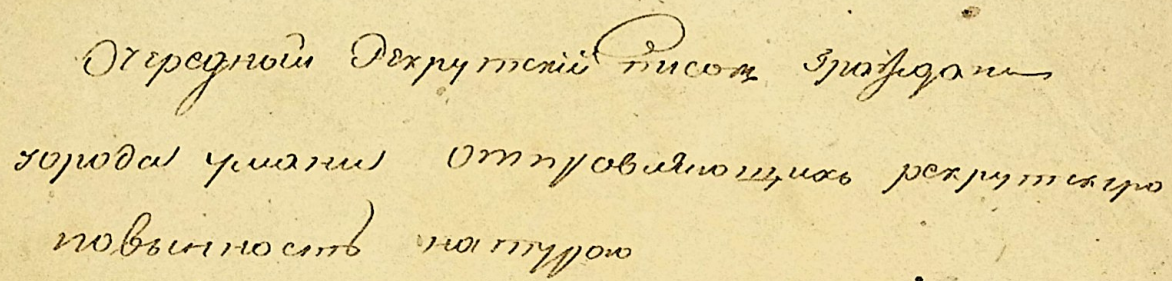 Очередный Рекрутскій Список граждан
города Умани отправляющихъ рекрутскую
повынность натурою